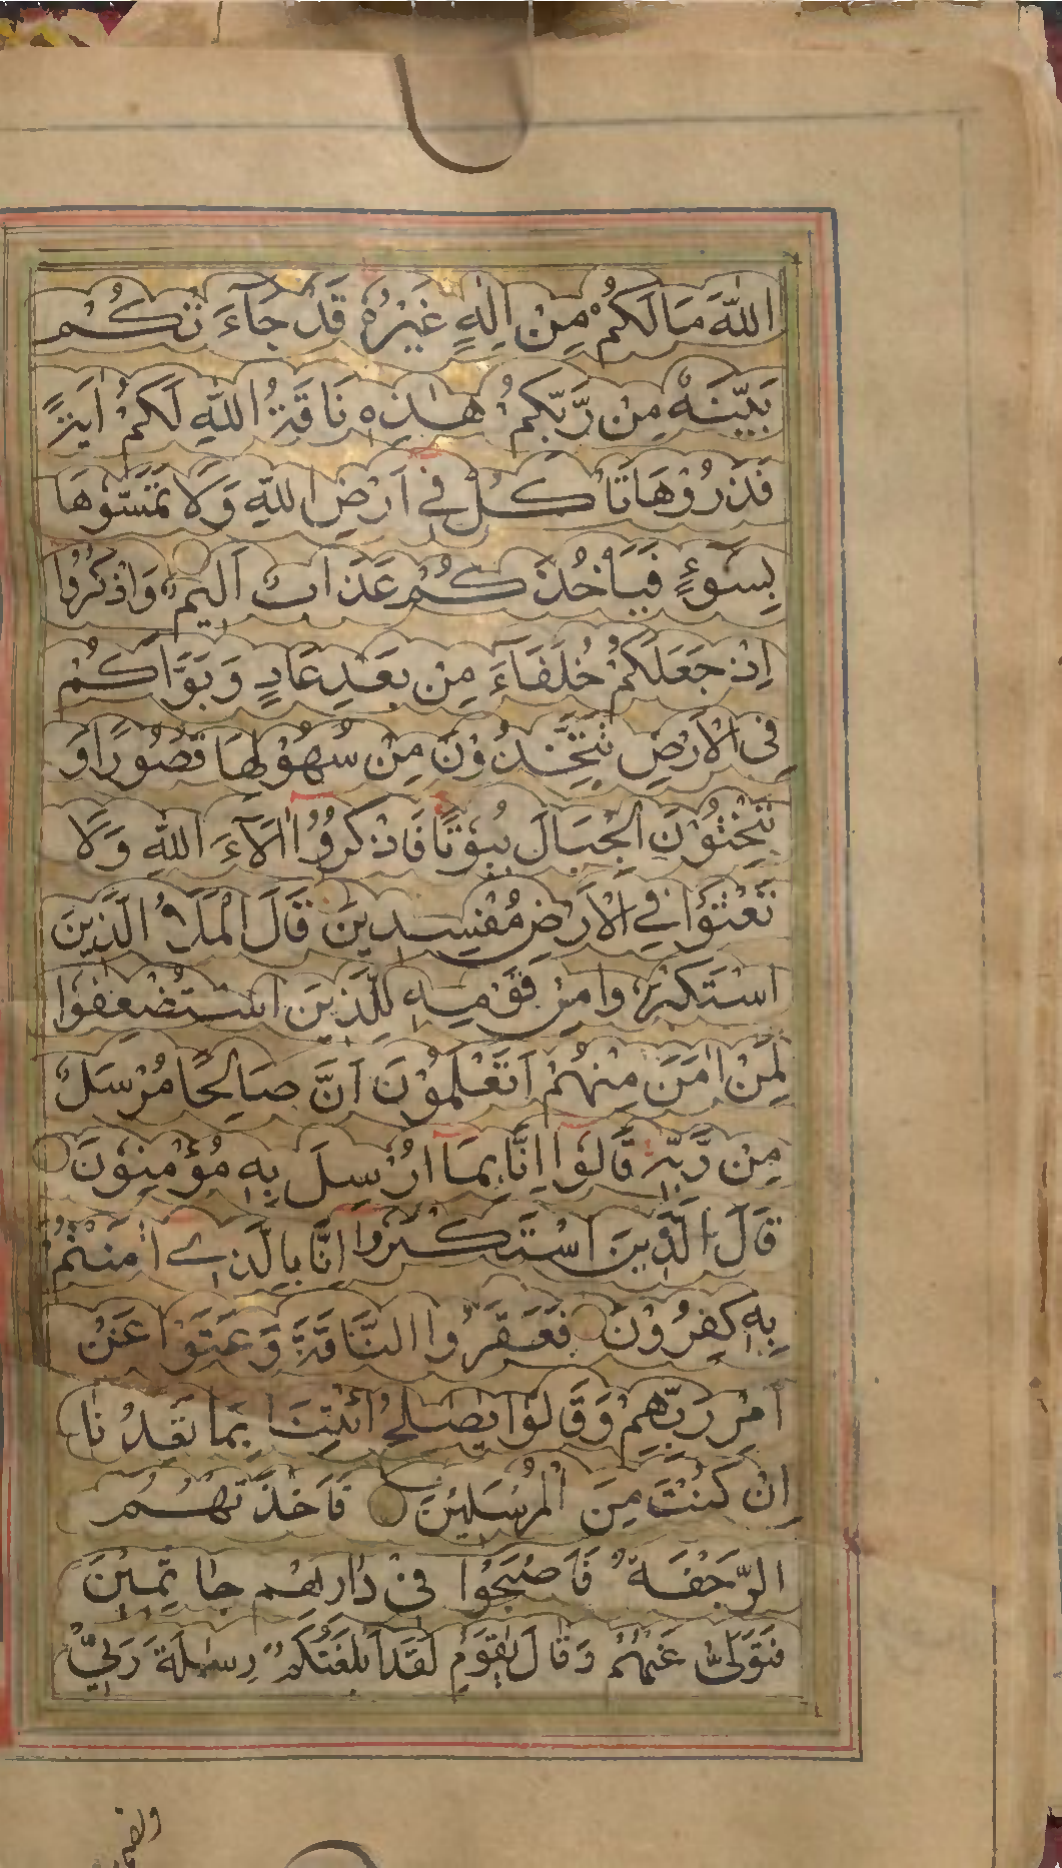 اللّٰهَ مَا لَكُمْ مِنْ اِلٰهٍ غَيْرُهٗ قَدْ جَآءَ تْكُمْ
بَيِّنَةٌ مِنْ رَّبِّكُمْ هٰذِهٖ نَاقَةُ اللّٰهِ لَكُمْ اٰيَةً
فَذَرُوْهَا تَاْكُلْ فِيْ اَرْضِ اللّٰهِ وَلَا تَمَسُّوْهَا
بِسُوْٓءٍ فَيَاْخُذَكُمْ عَذَابٌ اَلِيْمٌ وَاذْكُرُوْا
اِذْ جَعَلَكُمْ خُلَفَآءَ مِنْ بَعْدِ عَادٍ وَبَوَّاَكُمْ
فِى الْاَرْضِ تَتَّخِذُوْنَ مِنْ سُهُوْلِهَا قُصُوْرًا وَ
تَنْحِتُوْنَ الْجِبَالَ بُيُوْتًا فَاذْكُرُوْٓا اٰلَآءَ اللّٰهِ وَلَا
تَعْثَوْا فِي الْاَرْضِ مُفْسِدِيْنَ قَالَ الْمَلَاُ الَّذِيْنَ
اسْتَكْبَرُوا مِنْ قَوْمِهٖ لِلَّذِيْنَ اسْتُضْعِفُوْا
لِمَنْ اٰمَنَ مِنْهُمْ اَتَعْلَمُوْنَ اَنَّ صَالِحًا مُرْسَلٌ
مِنْ رَّبِّهٖ قَالُوْٓا اِنَّا بِمَآ اُرْسِلَ بِهٖ مُؤْمِنُوْنَ
قَالَ الَّذِيْنَ اسْتَكْبَرُوْٓا اِنَّا بِالَّذِيْٓ اٰمَنْتُمْ
بِهٖ كٰفِرُوْنَ فَعَقَرُوا النَّاقَةَ وَعَتَوْا عَنْ
اَمْرِ رَبِّهِمْ وَقَالُوْا يٰصٰلِحُ ائْتِنَا بِمَا تَعِدُنَا
اِنْ كُنْتَ مِنَ الْمُرْسَلِيْنَ فَاَخَذَتْهُمُ
الرَّجْفَةُ فَاَصْبَحُوْا فِيْ دَارِهِمْ جَاثِمِيْنَ
فَتَوَلّٰى عَنْهُمْ وَقَالَ يٰقَوْمِ لَقَدْ اَبْلَغْتُكُمْ رِسٰلَةَ رَبِّيْ